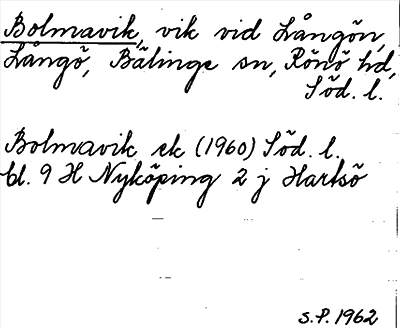 Bolmavik, vik vid Långön,
Långö, Bälinge sn, Rönö hd,
Söd. l.
Bolmavik ek (1960) Söd. l.
bl. 9 H Nyköping 2 j Hartsö
S.P. 1962